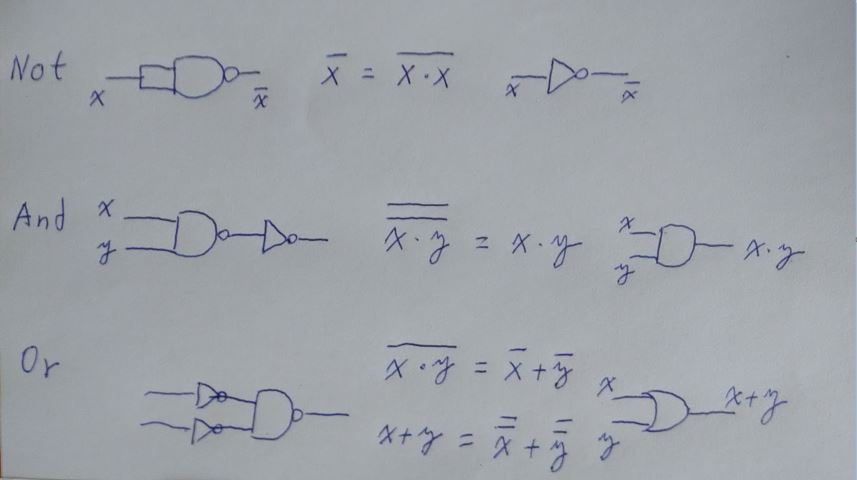 Not x x̅ x̅ = \overline{x·x} x x̅
And x y \overline{\overline{x·y}} = x·y x y x·y
Or \overline{x·y} = x̅ + y̅ x y x+y
x+y = \overline{\overline{x}} + \overline{\overline{y}}